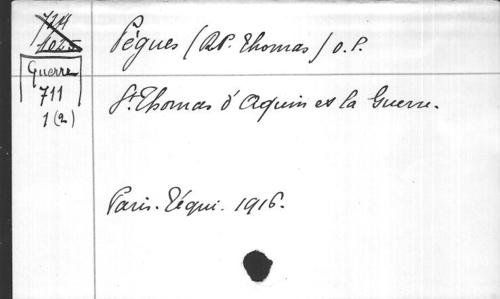 Pègues (R.P. Thomas) O.P.
Guerre
711
1(2)
St Thomas d'Aquin et la Guerre.
Paris. Téqui. 1916.